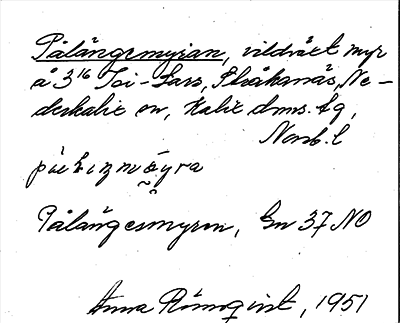 Pålängesmyran, vildväxt myr
å 3¹⁶ Toi-Lars, Stråkanäs, Ne-
derkalix sn, Kalix dms. tg,
Norrb. l
Pålängesmyren, Gn 37 NO
Anna Rönnqvist, 1951